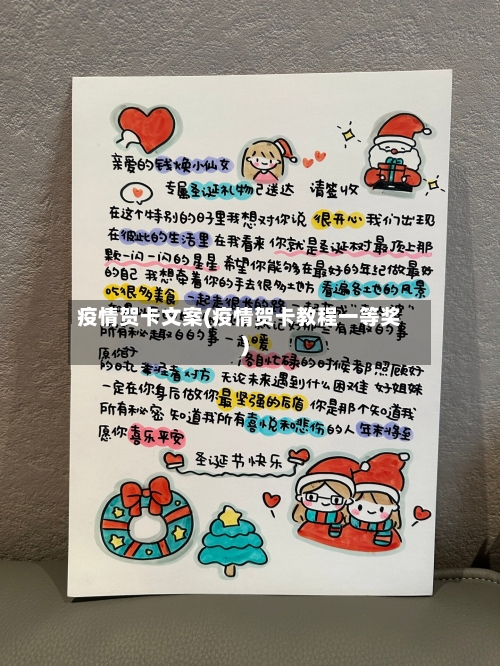 亲爱的钱焕小仙女
专属圣诞礼物已送达 请签收
在这个特别的日子里我想对你说 很开心 我们出现
在彼此的生活里 在我看来 你就是圣诞树最顶上那
颗一闪一闪的星星 希望你能够在最好的年纪做最好
的自己 我想牵着你的手去很多地方 看遍各土地的风景
吃很多美食 一起走很
疫情贺卡文案(疫情贺卡教程一等奖
)
所有
暖
愿你
各自忙碌的时候都照顾好
的 对方 无论未来遇到什么困难 好姐妹
一定在你身后做你最坚强的后盾 你是那个知道我
所有秘密 知道我所有喜悦和悲伤的人 年末将至
愿你喜乐平安
圣诞书快乐